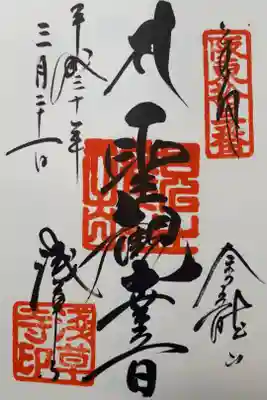 奉拝
金龍山
聖観世音
浅草寺
平成三十年
三月二十一日
浅草寺印